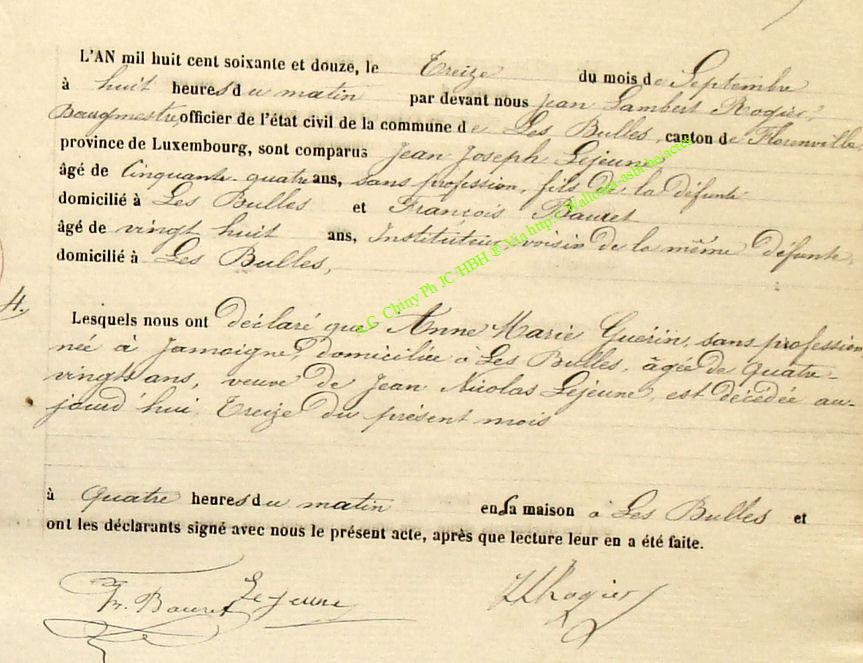 L'AN mil huit cent soixante et douze, le Treize du mois de Septembre
à huit heures du matin par devant nous Jean Lambert Rogier,
Bourgmestre, officier de l'état civil de la commune de Les Bulles, canton de Florenville,
province de Luxembourg, sont comparus Jean Joseph Lejeune
âgé de Cinquante-quatre ans, sans profession, fils de la défunte
domicilié à Les Bulles et François Bauret
âgé de vingt huit ans, Instituteur, voisin de la même défunte,
domicilié à Les Bulles,
4.
Lesquels nous ont déclaré que Anne Marie Guérin, sans profession
née à Jamoigne, domiciliée à Les Bulles, âgée de quatre-
vingts ans, veuve de Jean Nicolas Lejeune, est décédée au-
jourd'hui, Treize du présent mois
à quatre heures du matin en sa maison à Les Bulles et
ont les déclarants signé avec nous le présent acte, après que lecture leur en a été faite.
Fr. Bauret Lejeune JLRogier
e.G. Chiny Ph JC/HBH © Via http://Wallonia-asbl.be/actes